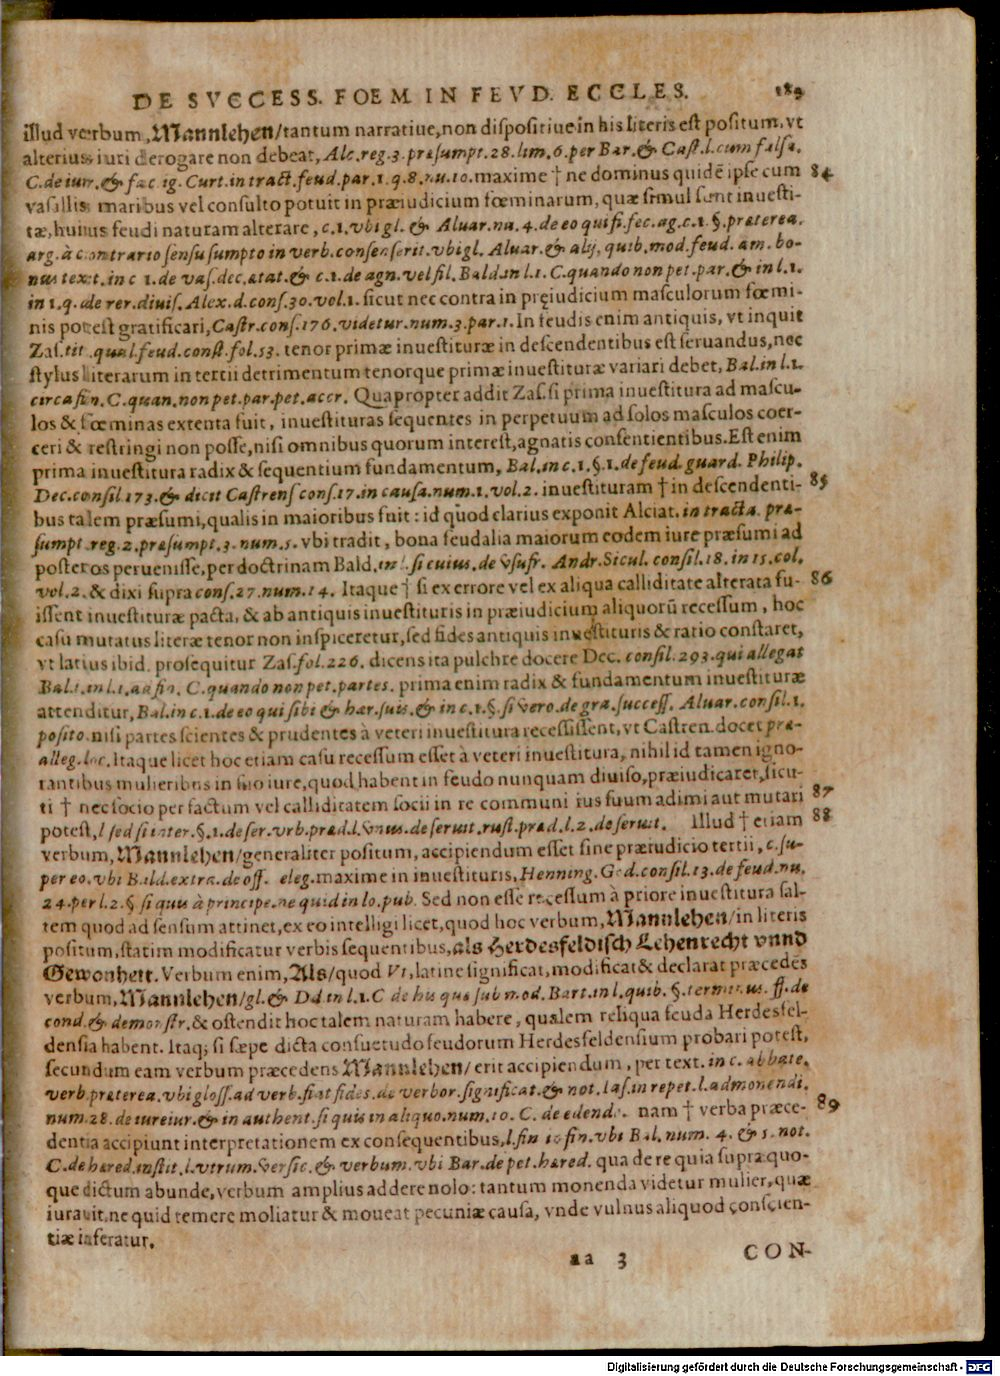 DE SVCCESS. FOEM. IN FEVD. ECCLES. 189
illud verbum, Mannlehen/tantum narratiue, non dispositiue in his literis est positum, vt
alterius iuri derogare non debeat, Alc. reg. 3. præsumpt. 28. lim. 6. per Bar. & Cast. l. cum falsa.
C. de iur. & fac. ig. Curt. in tract. feud. par. 1. q. 8. nu. 10. maxime † ne dominus quidē ipse cum 84
vasallis maribus vel consulto potuit in præiudicium fœminarum, quæ simul sunt inuesti-
tæ, huius feudi naturam alterare, c. 1. vbi gl. & Aluar. nu. 4. de eo qui fi. fec. ag. c. 1. §. præterea.
arg. à contrario sensu sumpto in verb. consenserit. vbi gl. Aluar. & alij, quib. mod. feud. am. bo-
nus text. in c 1. de vas. dec. ætat. & c. 1. de agn. vel fil. Bald. in l. 1. C. quando non pet. par. & in l. 1.
in 1. q. de rer. diuis. Alex. d. cons. 30. vol. 1. sicut nec contra in pręiudicium masculorum fœmi-
nis potest gratificari, Castr. cons. 176. videtur. num. 3. par. 1. In feudis enim antiquis, vt inquit
Zas. tit. qual. feud. const. fol. 53. tenor primæ inuestituræ in descendentibus est seruandus, nec
stylus literarum in tertii detrimentum tenorque primæ inuestituræ variari debet, Bal. in l. 1.
circa fin. C. quan. non pet. par. pet. accr. Quapropter addit Zas. si prima inuestitura ad mascu-
los & fœminas extenta fuit, inuestituras sequentes in perpetuum ad solos masculos coer-
ceri & restringi non posse, nisi omnibus quorum interest, agnatis consentientibus. Est enim
prima inuestitura radix & sequentium fundamentum, Bal. in c. 1. §. 1. de feud. guard. Philip.
Dec. consil 173. & dicit Castrens. cons. 17. in causa. num. 1. vol. 2. inuestituram † in descendenti- 85
bus talem præsumi, qualis in maioribus fuit: id quod clarius exponit Alciat. in tracta. præ-
sumpt. reg. 2. præsumpt. 3. num. 5. vbi tradit, bona feudalia maiorum eodem iure præsumi ad
posteros peruenisse, per doctrinam Bald. in l. si cuius. de vsufr. Andr. Sicul. consil. 18. in 15. col.
vol. 2. & dixi supra cons. 27. num. 14. Itaque † si ex errore vel ex aliqua calliditate alterata fu- 86
issent inuestituræ pacta, & ab antiquis inuestituris in præiudicium aliquorū recessum, hoc
casu mutatus literæ tenor non inspiceretur, sed fides antiquis inuestituris & ratio constaret,
vt latius ibid. prosequitur Zas. fol. 226. dicens ita pulchre docere Dec. consil. 293. qui allegat
Bal. in l. 1. ad fin. C. quando non pet. partes. prima enim radix & fundamentum inuestituræ
attenditur, Bal. in c. 1. de eo qui sibi & hær. suis. & in c. 1. §. si vero. de gra. success. Aluar. consil. 1.
posito. nisi partes scientes & prudentes à veteri inuestitura recessissent, vt Castren. docet præ-
alleg. loc. Itaque licet hoc etiam casu recessum esset à veteri inuestitura, nihil id tamen igno-
rantibus mulieribus in suo iure, quod habent in feudo nunquam diuiso, præiudicaret, sicu-
ti † nec socio per factum vel calliditatem socii in re communi ius suum adimi aut mutari 87
potest, l sed si inter. §. 1. de ser. vrb. præd. l. vnus. de seruit. rust. præd. l. 2. de seruit. Illud † etiam 88
verbum, Mannlehen/generaliter positum, accipiendum esset sine præiudicio tertii, c. su-
per eo. vbi Bald. extra. de off. eleg. maxime in inuestituris, Henning. God. consil. 13. de feud. nu.
24. per l. 2. § si quis à principe. ne quid in lo. pub. Sed non esse recessum à priore inuestitura sal-
tem quod ad sensum attinet, ex eo intelligi licet, quod hoc verbum, Mannlehen/in literis
positum, statim modificatur verbis sequentibus, als Herdesfeldisch Lehenrecht vnnd
Gewonheit. Verbum enim, Als/quod Vt, latine significat, modificat & declarat præcedēs
verbum, Mannlehen/gl. & Dd. in l. 1. C de his quæ sub mod. Bart. in l. quib. §. terminus. ff. de
cond. & demonstr. & ostendit hoc talem naturam habere, qualem reliqua feuda Herdesfel-
densia habent. Itaq; si sæpe dicta consuetudo feudorum Herdesfeldensium probari potest,
secundum eam verbum præcedens Mannlehen/ erit accipiendum, per text. in c. abbate.
verb. præterea. vbi gloss. ad verb. fiat fides. de verbor. significat. & not. Ias. in repet. l. admonendi.
num. 28. de iureiur. & in authent. si quis in aliquo. num. 10. C. de edendo. nam † verba præce- 89
dentia accipiunt interpretationem ex consequentibus, l. fin in fin. vbi Bal. num. 4. & 5. not.
C. de hæred. instit. l. vtrum. versic. & verbum. vbi Bar. de pet. hæred. qua de re quia supra quo-
que dictum abunde, verbum amplius addere nolo: tantum monenda videtur mulier, quæ
iurauit, ne quid temere moliatur & moueat pecuniæ causa, vnde vulnus aliquod conscien-
tiæ inferatur.
aa 3 CON-
Digitalisierung gefördert durch die Deutsche Forschungsgemeinschaft - DFG